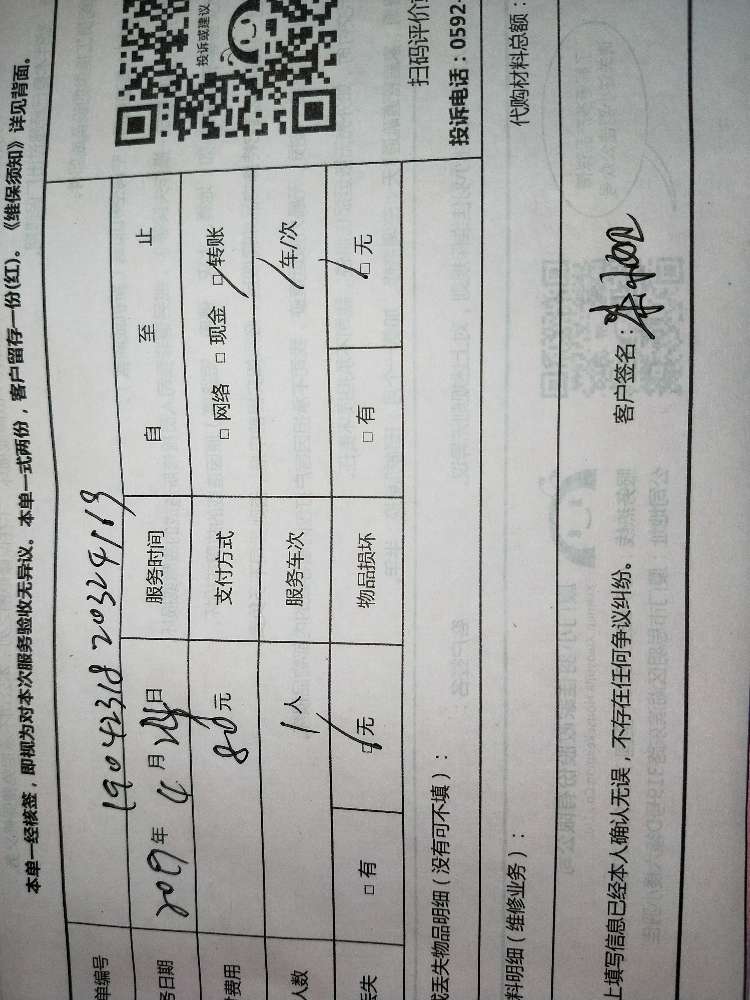 本单一经核签，即视为对本次服务验收无异议。本单一式两份，客户留存一份(红)。《维保须知》详见背面。
单编号 19042318203241169
务日期 2019年4月日 服务时间 自 至 止
费用 80元 支付方式 □网络 □现金 □转账
人数 1人 服务车次 车/次
丢失 □有 □无 物品损坏 □有 □无
投诉或建议
扫码评价
投诉电话：0592-
或丢失物品明细（没有可不填）：
料明细（维修业务）：
代购材料总额：
上填写信息已经本人确认无误，不存在任何争议纠纷。 客户签名：